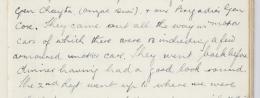 Gen Chaytor (Anzac Divn) & our Brigadier Gen
Cox. They came out all the way in motor
cars of which there were 13 including a few
armoured motor cars. They went back before
dinner having had a good look round.
The 2nd Regt went up to where we were